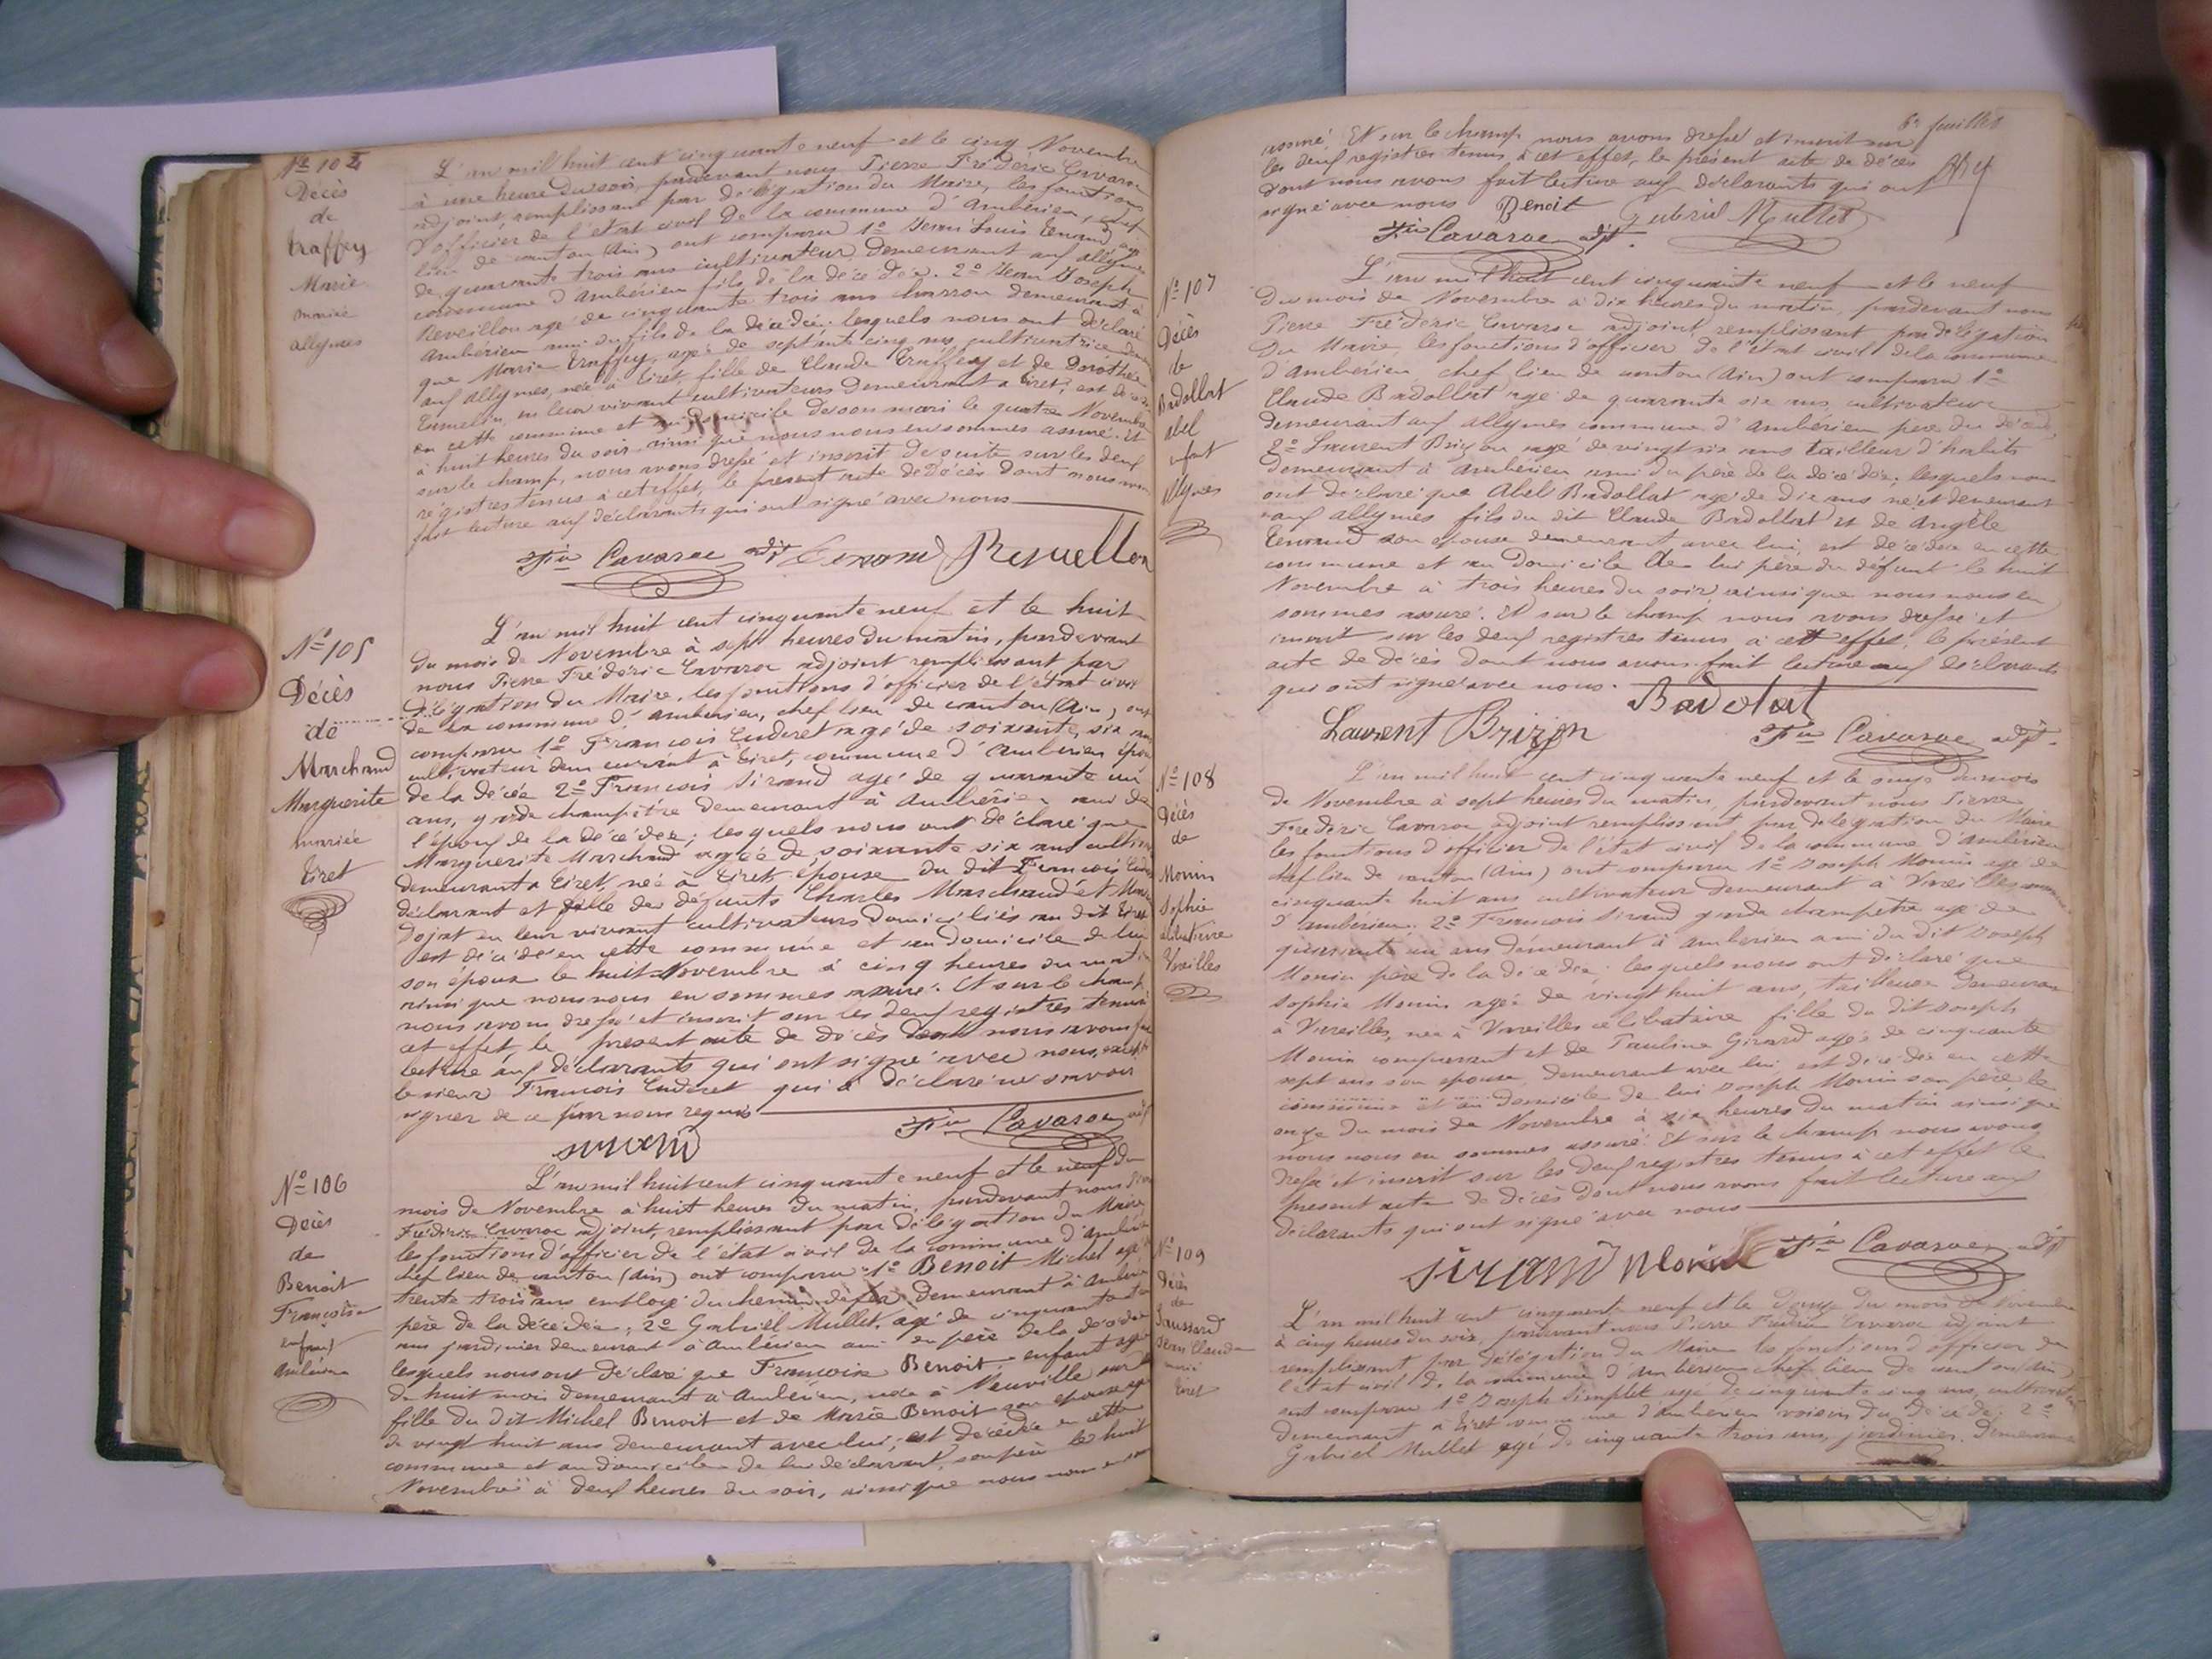 Nº 104
Décès
de
traffey
Marie
mariée
allymes
L'an mil huit cent cinquante neuf et le cinq Novembre
à une heure du soir, pardevant nous Pierre Frédéric Cavaroc
adjoint, remplissant par délégation du Maire, les fonctions
d'officier de l'état civil de la commune d'ambérieu, chef
lieu de canton (Ain) ont comparu 1º Jean Louis
de quarante trois ans cultivateur demeurant aux allymes
commune d'ambérieu fils de la décédée. 2º Jean Joseph
Reveillon agé de cinquante trois ans charron demeurant à
ambérieu ami du fils de la décédée; lesquels nous ont déclaré
que Marie Traffey, agée de septante cinq ans, cultivatrice
aux allymes, née à Tiret, fille de Claude Traffey et de Dorothée
en leur vivant cultivateurs demeurant à Tiret, est
en cette commune et au domicile de son mari le quatre Novembre
à huit heures du soir, ainsi que nous nous en sommes assuré. Et
sur le champ, nous avons dressé et inscrit de suite sur les deux
régistres tenus à cet effet, le présent acte de décès dont nous avons
fait lecture aux déclarants qui ont signé avec nous
Cavaroc adjt Reveillon
Nº 105
Décès
de
Marchand
Marguerite
mariée
Tiret
L'an mil huit cent cinquante neuf et le huit
du mois de Novembre à sept heures du matin, pardevant
nous Pierre Frédéric Cavaroc adjoint remplissant par
délégation du Maire, les fonctions d'officier de l'état civil
de la commune d'ambérieu, chef lieu de canton (Ain) ont
comparu 1º François Cuderet agé de soixante six ans
cultivateur demeurant à Tiret, commune d'ambérieu époux
de la décée 2º François Sirand agé de quarante un
ans, garde champêtre demeurant à ambérieu ami de
l'époux de la décédée; lesquels nous ont déclaré que
Marguerite Marchand agée de soixante six ans
demeurant à Tiret, née à Tiret, épouse du dit François
déclarant et fille des défunts Charles Marchand et
Dojat en leur vivant cultivateurs domiciliés au dit Tiret
est décédée en cette commune et au domicile de
son époux le huit Novembre à cinq heures du matin
ainsi que nous nous en sommes assuré. Et sur le champ
nous avons dressé et inscrit sur les deux registres tenus à
cet effet, le présent acte de décès dont nous avons
lecture aux déclarants qui ont signé avec nous, excepté
le sieur François Cuderet qui a déclaré ne savoir
signer de ce par nous requis
sirand Cavaroc adjt
Nº 106
Décès
de
Benoit
Françoise
enfant
Ambérieu
L'an mil huit cent cinquante neuf et le neuf du
mois de Novembre à huit heures du matin, pardevant nous
Frédéric Cavaroc adjoint, remplissant par délégation du Maire,
les fonctions d'officier de l'état civil de la commune d'ambérieu
chef lieu de canton (Ain) ont comparu 1º Benoit Michel agé
trente trois ans employé du chemin de fer demeurant à ambérieu
père de la décédée; 2º Gabriel Mullet, agé de cinquante trois
ans jardinier demeurant à Ambérieu ami du père de la décédée
lesquels nous ont déclaré que Françoise Benoit enfant agée
de huit mois demeurant à Ambérieu, née à Neuville sur
fille du dit Michel Benoit et de Marie Benoit son épouse agée
de vingt huit ans demeurant avec lui; est décédée en cette
commune et au domicile de lui déclarant, son père le huit
Novembre à deux heures du soir, ainsi que nous nous en
6e feuillet
assuré. Et sur le champ nous avons dressé et inscrit sur
les deux registres tenus à cet effet, le présent acte de décès
dont nous avons fait lecture aux déclarants qui ont
signé avec nous Benoit Gabriel Mullet
Cavaroc adjt.
Nº 107
Décès
de
Badollat
abel
enfant
allymes
L'an mil huit cent cinquante neuf et le neuf
du mois de Novembre à dix heures du matin, pardevant nous
Pierre Frédéric Cavaroc adjoint, remplissant par délégation
du Maire, les fonctions d'officier de l'état civil de la commune
d'ambérieu chef lieu de canton (Ain) ont comparu 1º
Claude Badollat agé de quarante six ans, cultivateur
demeurant aux allymes commune d'ambérieu père du décédé
2º Laurent Brizon agé de vingt six ans tailleur d'habits
demeurant à ambérieu ami du père de la décédée; lesquels nous
ont déclaré que Abel Badollat agé de dix ans né et demeurant
aux allymes fils du dit Claude Badollat et de Angèle
son épouse demeurant avec lui, est décédée en cette
commune et au domicile de lui père du défunt le huit
Novembre à trois heures du soir, ainsi que nous nous en
sommes assuré. Et sur le champ nous avons dressé et
inscrit sur les deux registres tenus à cet effet, le présent
acte de décès dont nous avons fait lecture aux déclarants
qui ont signé avec nous.
Badolat
Laurent Brizon Cavaroc adjt.
Nº 108
Décès
de
Monin
Sophie
célibataire
Vareilles
L'an mil huit cent cinquante neuf et le onze du mois
de Novembre à sept heures du matin, pardevant nous Pierre
Frédéric Cavaroc adjoint remplissant par délégation du Maire
les fonctions d'officier de l'état civil de la commune d'ambérieu
chef lieu de canton (Ain) ont comparu 1º Joseph Monin agé de
cinquante huit ans cultivateur demeurant à Vareilles commune
d'ambérieu; 2º François Sirand garde champêtre agé de
quarante un ans demeurant à ambérieu ami du dit Joseph
Monin père de la décédée; lesquels nous ont déclaré que
Sophie Monin agée de vingt huit ans, tailleuse demeurant
à Vareilles, née à Vareilles célibataire fille du dit Joseph
Monin comparant et de Pauline Girard agée de cinquante
sept ans son épouse, demeurant avec lui, est décédée en cette
commune et au domicile de lui Joseph Monin son père le
onze du mois de Novembre à six heures du matin ainsi que
nous nous en sommes assuré. Et sur le champ nous avons
dressé et inscrit sur les deux registres tenus à cet effet le
présent acte de décès dont nous avons fait lecture aux
déclarants qui ont signé avec nous
sirand Monin Cavaroc adjt
Nº 109
Décès
de
Jean Claude
marié
Tiret
L'an mil huit cent cinquante neuf et le douze du mois de Novembre
à cinq heures du soir, pardevant nous Pierre Frédéric Cavaroc adjoint
remplissant par délégation du Maire les fonctions d'officier de
l'état civil de la commune d'ambérieu chef lieu de canton (Ain)
ont comparu 1º Joseph Simplet agé de cinquante cinq ans, cultivateur
demeurant à Tiret commune d'ambérieu voisin du décédé; 2º
Gabriel Mullet agé de cinquante trois ans, jardinier demeurant